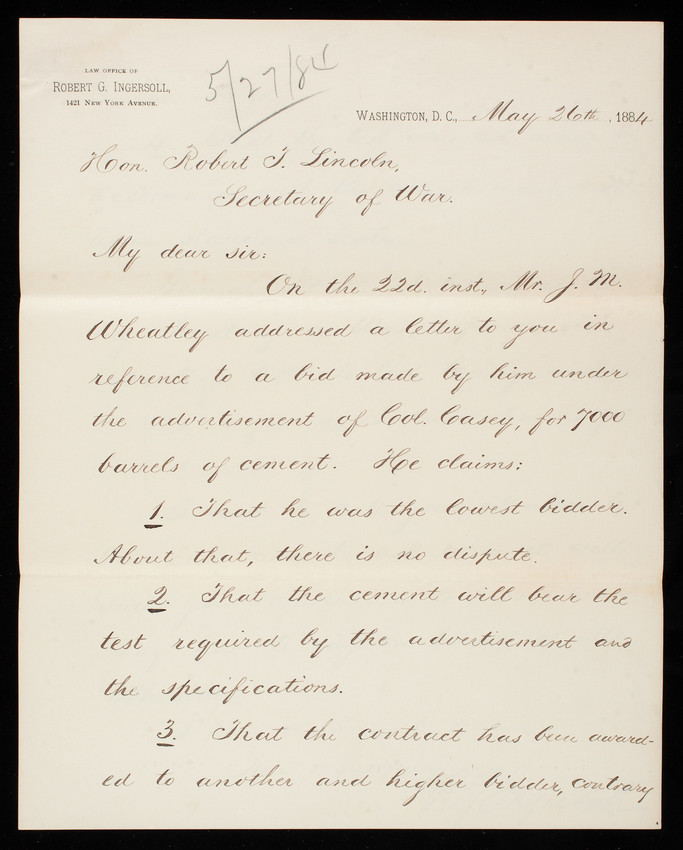 LAW OFFICE OF
ROBERT G. INGERSOLL,
1421 NEW YORK AVENUE.
5/27/84
WASHINGTON, D. C., May 26th, 1884
Hon. Robert T. Lincoln,
Secretary of War.
My dear sir:
On the 22d. inst., Mr. J. M.
Wheatley addressed a letter to you in
reference to a bid made by him under
the advertisement of Col. Casey, for 7000
barrels of cement. He claims:
1. That he was the lowest bidder.
About that, there is no dispute.
2. That the cement will bear the
test required by the advertisement and
the specifications.
3. That the contract has been award-
ed to another and higher bidder, contrary